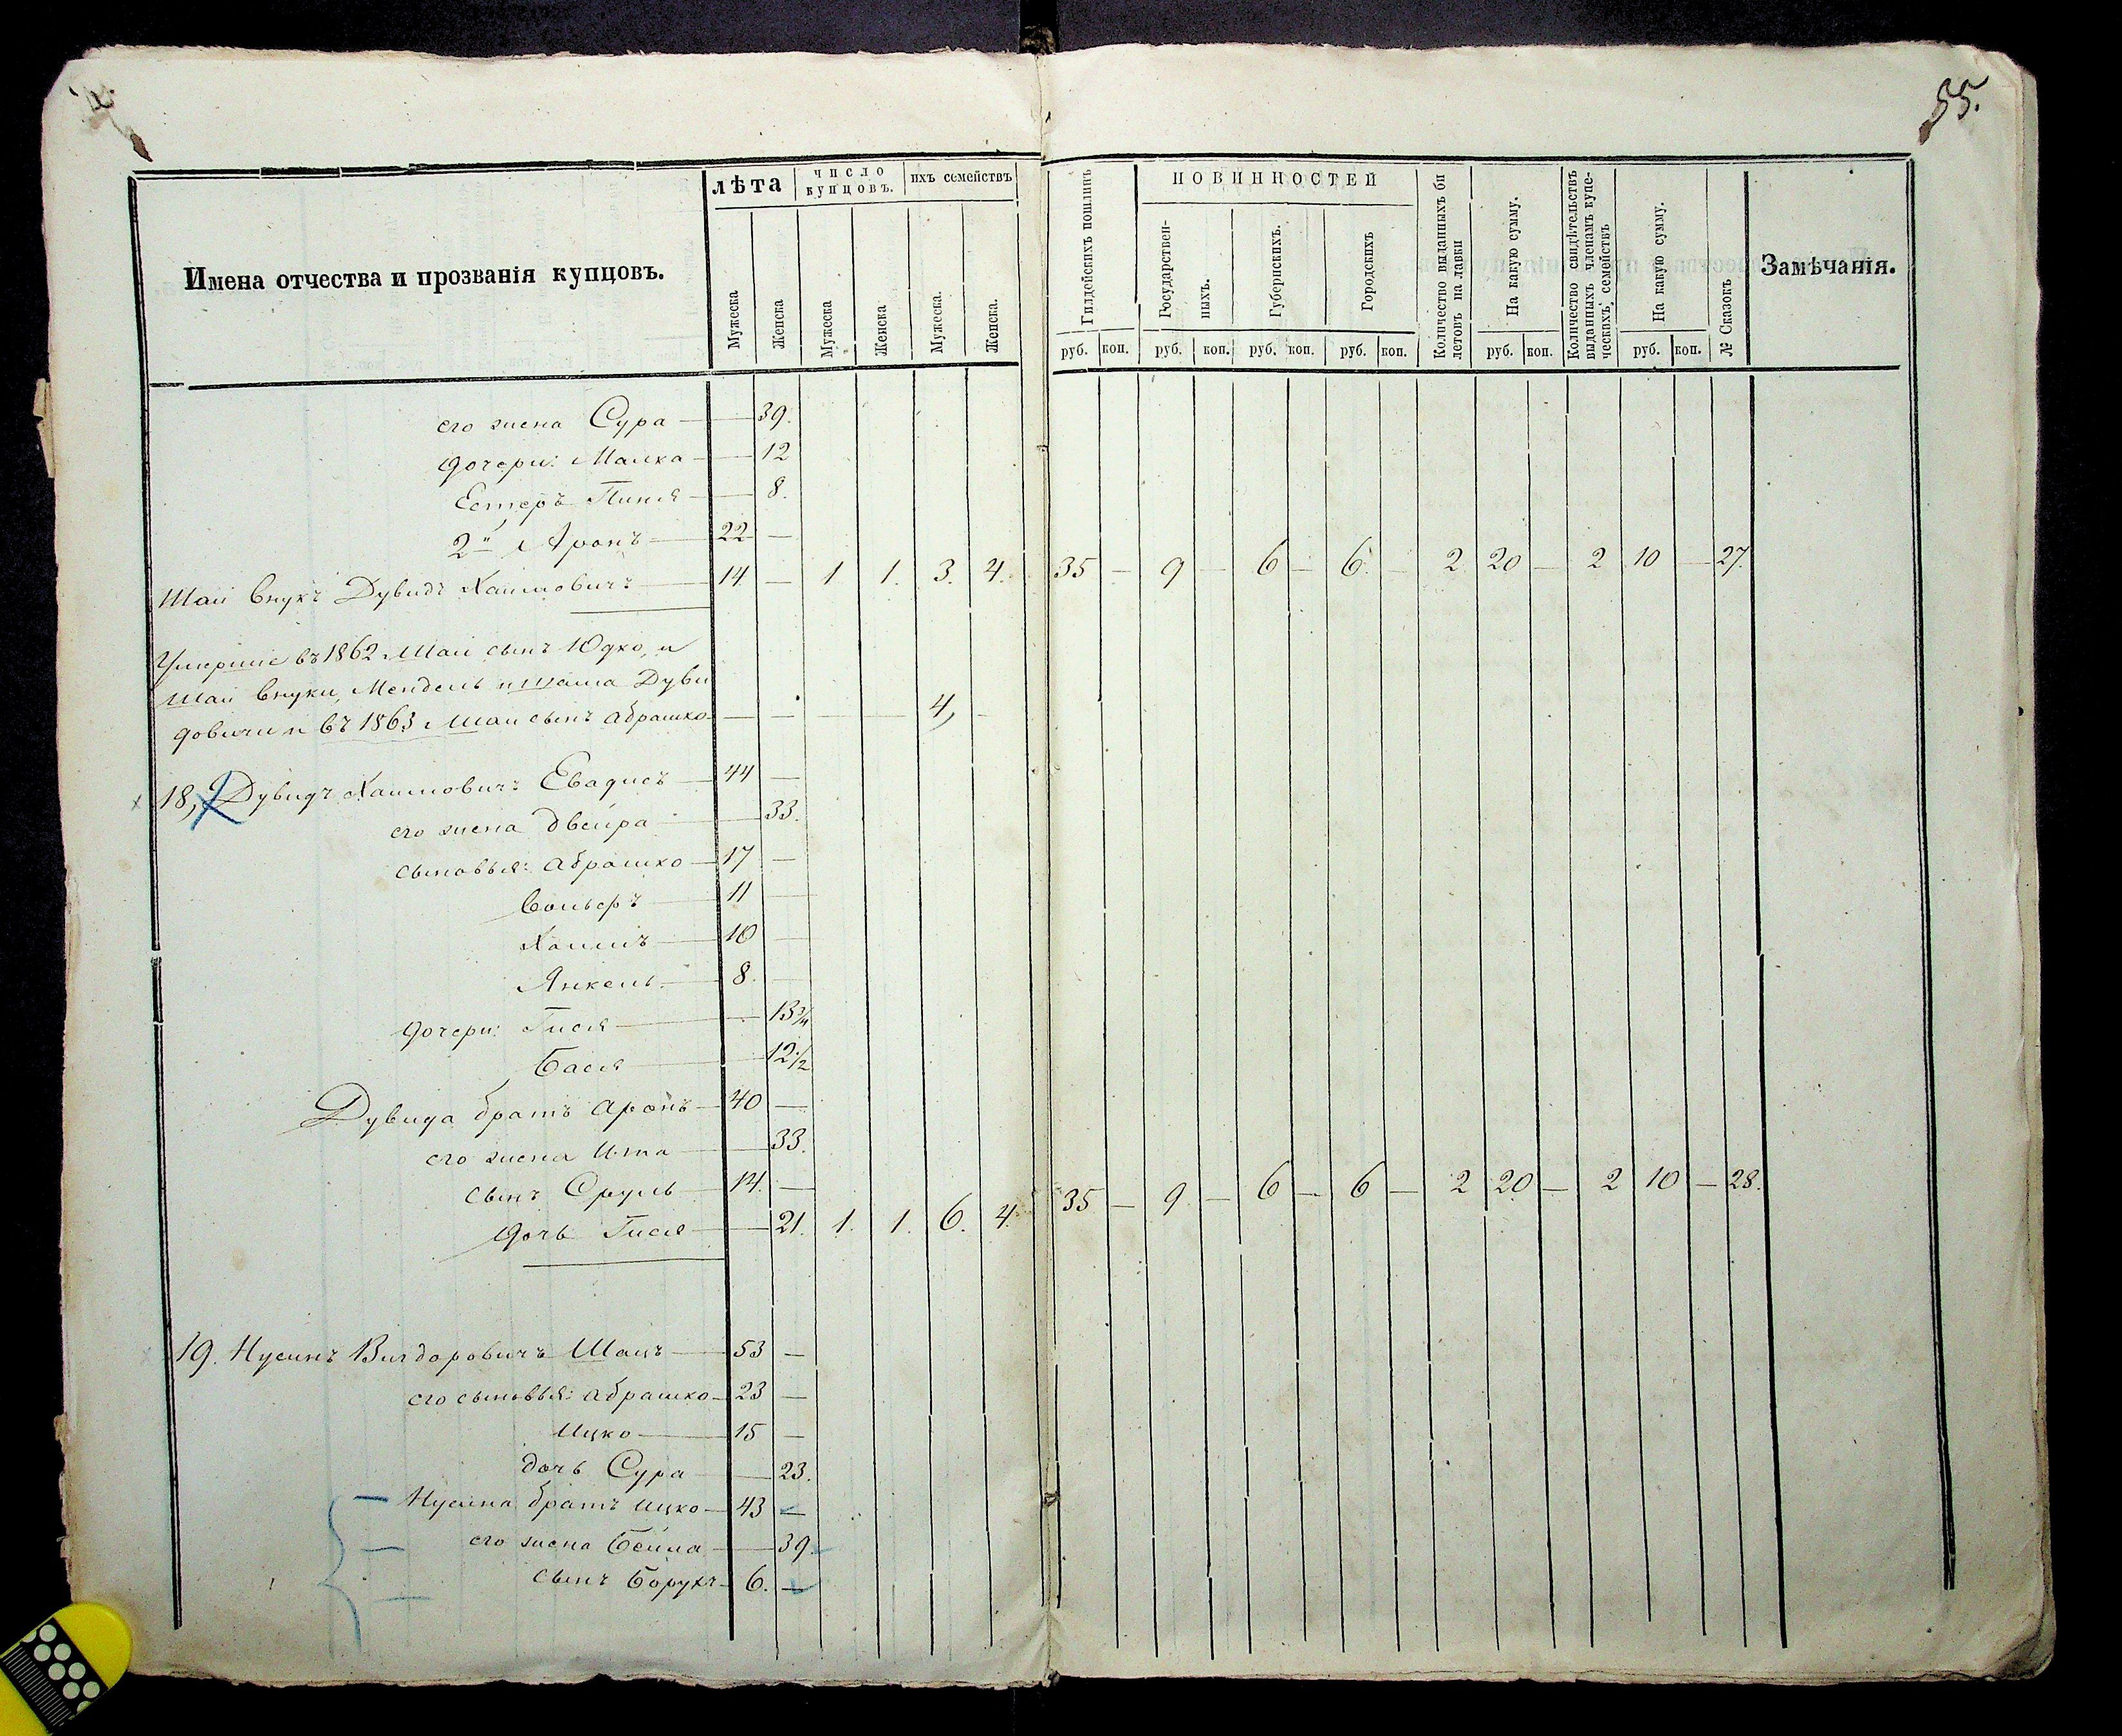 55.
Имена отчества и прозванія купцовъ.
лѣта
число купцовъ.
ихъ семействъ
Мужеска
Женска
Мужеска
Женска
Мужеска.
Женска.
Гилдейскихъ пошлинъ
ПОВИННОСТЕЙ
Государствен-
ныхъ.
Губернскихъ.
Городскихъ
Количество выданныхъ би
летовъ на лавки
На какую сумму.
Количество свидѣтельствъ
выданныхъ членамъ купе-
ческихъ, семействъ
На какую сумму.
№ Сказокъ
Замѣчанія.
руб. коп. руб. коп. руб. коп. руб. коп. руб. коп. руб. коп.
его жена Сура — — 39.
дочери: Малка — — 12
Естеръ — 8.
2й Аронъ — 22 —
Шаи внукъ Дувидъ Хаимовичъ — 14 — 1 1. 3. 4. 35 — 9 — 6 — 6. — 2 20 — 2 10 — 27.
Умершіе въ 1862 Шаи сынъ Юдко, и
Шаи внуки, Мендель и Шама Дуви
довичи и въ 1863 Шаи сынъ Абрашко — — — — — 4, —
18, Дувидъ Хаимовичъ Евадисъ — 44 —
его жена Двейра — — 33.
сыновья: Абрашко — 17 —
Вольфъ — 11 —
Хаимъ — 10 —
Янкель — 8. —
дочери: Гися — — 13 3/4
Бася — — 12 1/2
Дувида братъ Аронъ — 40 —
его жена Ита — — 33.
сынъ Сруль — 14. —
дочь Гися — — 21. 1. 1. 6. 4. 35 — 9 — 6 — 6 — 2 20 — 2 10 — 28.
19. Нусинъ Вигдоровичъ Шацъ — 53 —
его сыновья: Абрашко — 23 —
Ицко — 15 —
дочь Сура — — 23.
Нусина братъ Ицко — 43 —
его жена Бейла — — 39.
сынъ Борухъ — 6. —